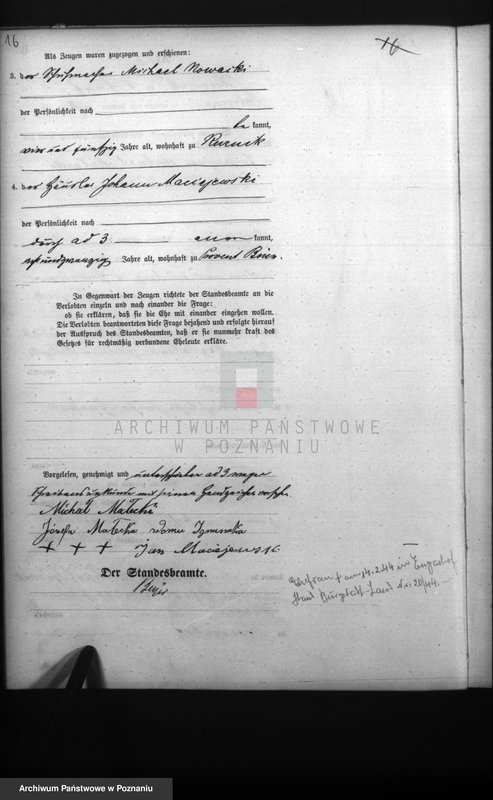 16
16
Als Zeugen waren zugezogen und erschienen:
3. der Schuhmacher Michael Nowacki
der Persönlichkeit nach
be kannt,
vier und fünfzig Jahre alt, wohnhaft zu Kurnik
4. der Häusler Johann Maciejewski
der Persönlichkeit nach
durch ad 3. aner kannt,
acht und zwanzig Jahre alt, wohnhaft zu Provent Bnin.
In Gegenwart der Zeugen richtete der Standesbeamte an die
Verlobten einzeln und nach einander die Frage:
ob sie erklären, daß sie die Ehe mit einander eingehen wollen.
Die Verlobten beantworteten diese Frage bejahend und erfolgte hierauf
der Ausspruch des Standesbeamten, daß er sie nunmehr kraft des
Gesetzes für rechtmäßig verbundene Eheleute erkläre.
ARCHIWUM PAŃSTWOWE
W POZNANIU
Vorgelesen, genehmigt und unterschrieben ad 3 wegen
Schreibensunkunde mit seinem Handzeichen versehen
Michał Małecki
Józefa Małecka
+ + + Jan Maciejewski
Der Standesbeamte.
Ehefrau † am 14.2.44 in
Stand. Land Nr. 20/44.
Archiwum Państwowe w Poznaniu